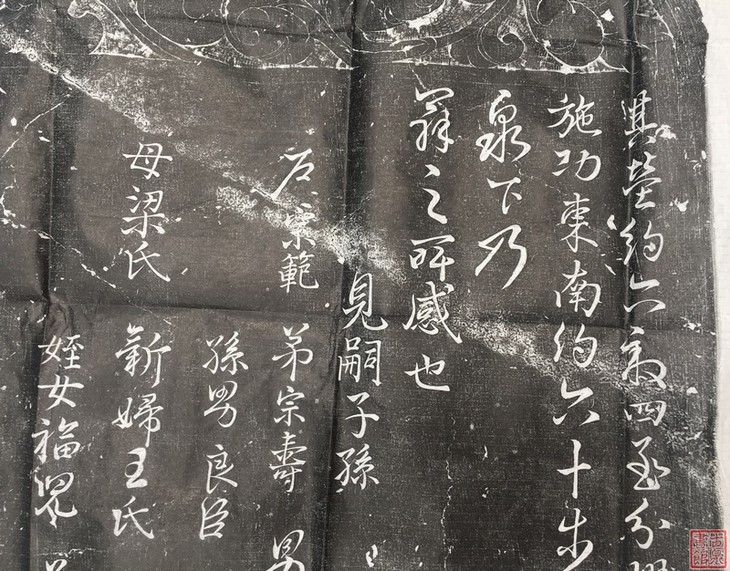 其塋約六畝四至分
施功東南約六十步
泉下乃
之所感也
見嗣子孫
石宗範 弟宗壽 男
孫男良臣
母梁氏 新婦王氏
姪女福兒